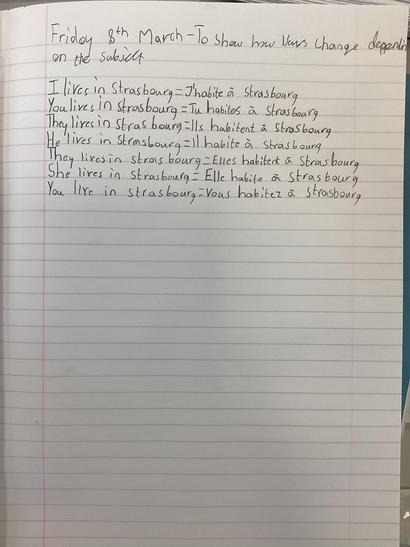 Friday 8th March - To show how Verbs change depending
on the subject
I lives in Strasbourg = J'habite à Strasbourg
You lives in Strasbourg = Tu habites à Strasbourg
They lives in Strasbourg = Ils habitent à Strasbourg
He lives in Strasbourg = Il habite à Strasbourg
They lives in Strasbourg = Elles habitent à Strasbourg
She lives in Strasbourg = Elle habite à Strasbourg
You live in Strasbourg = Vous habitez à Strasbourg